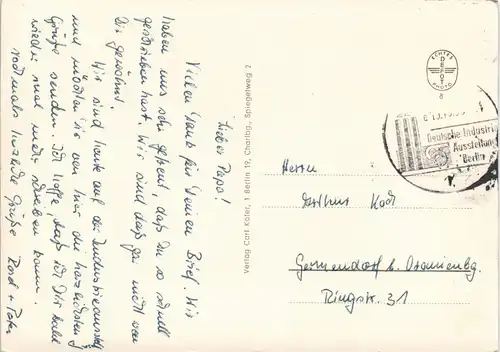 Lieber Papa!
Vielen Dank für Deinen Brief. Wir
haben uns sehr gefreut, daß Du so schnell
geschrieben hast. Wir sind daß gar nicht von
Dir gewöhnt.
Wir sind heute auf der Industrieausstellg
und möchten Dir von hier die herzlichsten
Grüße senden. Ich hoffe, daß ich Dir bald
wieder mal mehr schreiben kann.
nochmals herzliche Grüße
Verlag Carl Köfer, 1 Berlin 19, Charlbg., Spiegelweg 7
ECHTES
DEPOT
PHOTO
Deutsche Industrie
Ausstellung
Berlin
Herrn
Arthur Koch
Germendorf b. Oranienbg.
Ringstr. 31